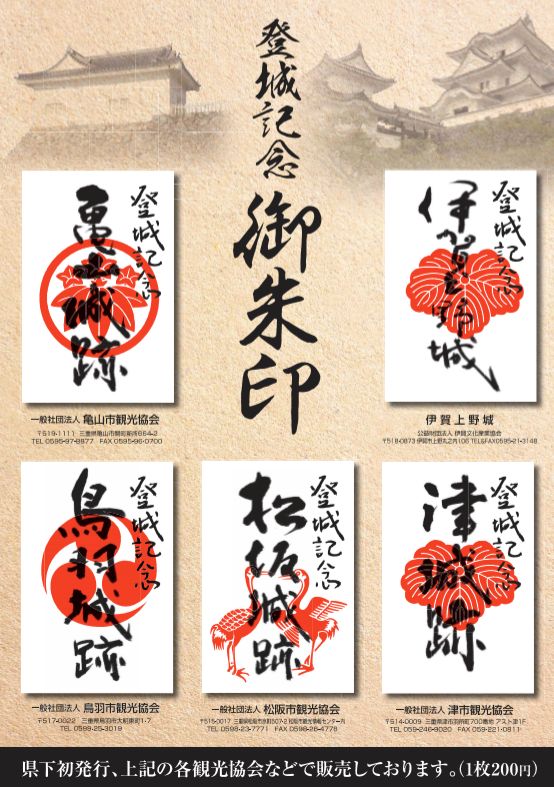 登城記念
御朱印
登城記念
亀山城跡
一般社団法人 亀山市観光協会
〒519-1111 三重県亀山市関町新所664-2
TEL 0595-97-8877 FAX 0595-96-0700
登城記念
伊賀上野城
伊賀上野城
公益財団法人 伊賀文化産業協会
〒518-0873 伊賀市上野丸之内106 TEL&FAX0595-21-3148
登城記念
鳥羽城跡
一般社団法人 鳥羽市観光協会
〒517-0022 三重県鳥羽市大明東町1-7
TEL 0599-25-3019
登城記念
松坂城跡
一般社団法人 松阪市観光協会
〒515-0017 三重県松阪市京町507-2 松阪市観光情報センター内
TEL 0598-23-7771 FAX 0598-26-4778
登城記念
津城跡
一般社団法人 津市観光協会
〒514-0009 三重県津市羽所町700番地 アスト津1F
TEL 059-246-9020 FAX 059-221-0811
県下初発行、上記の各観光協会などで販売しております。(1枚200円)